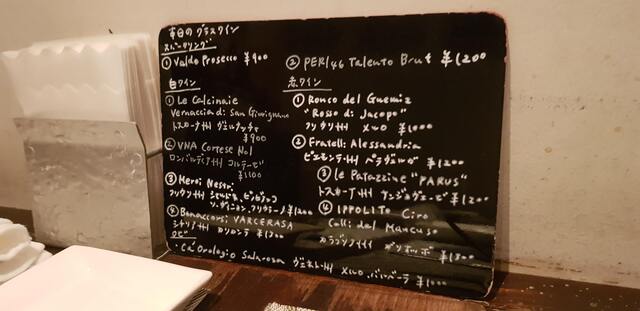 本日の グラスワイン
スパークリング
① Valdo Prosecco ¥900
② PER/46 Talento Brut ¥1200
白ワイン
① Le Calcinaie
Vernaccia di San Gimignano
トスカーナ州 ヴェルナッチャ
¥900
② VNA Cortese No1
ロンバルディア州 コルテーゼ
¥1100
③ Meroi Nesso
フリウリ州
ソーヴィニョン、フリウラーノ ¥1200
④ Bonaccorsi VARCERASA
シチリア州 カリカンテ ¥1300
赤ワイン
① Ronco del Guemiz
"Rosso di Jacopo"
フリウリ州 メルロ ¥1000
② Fratelli Alessandria
ピエモンテ州 ペラヴェルガ ¥1200
③ le Patazzine "PARUS"
トスカーナ州 サンジョヴェーゼ ¥1200
④ IPPOLITO Ciro
Colli del Mancuso
カラブリア州 ガリオッポ ¥1300
ロゼ
・Ca' Orologio Salarosa ヴェネト州 メルロ、バルベーラ ¥1000